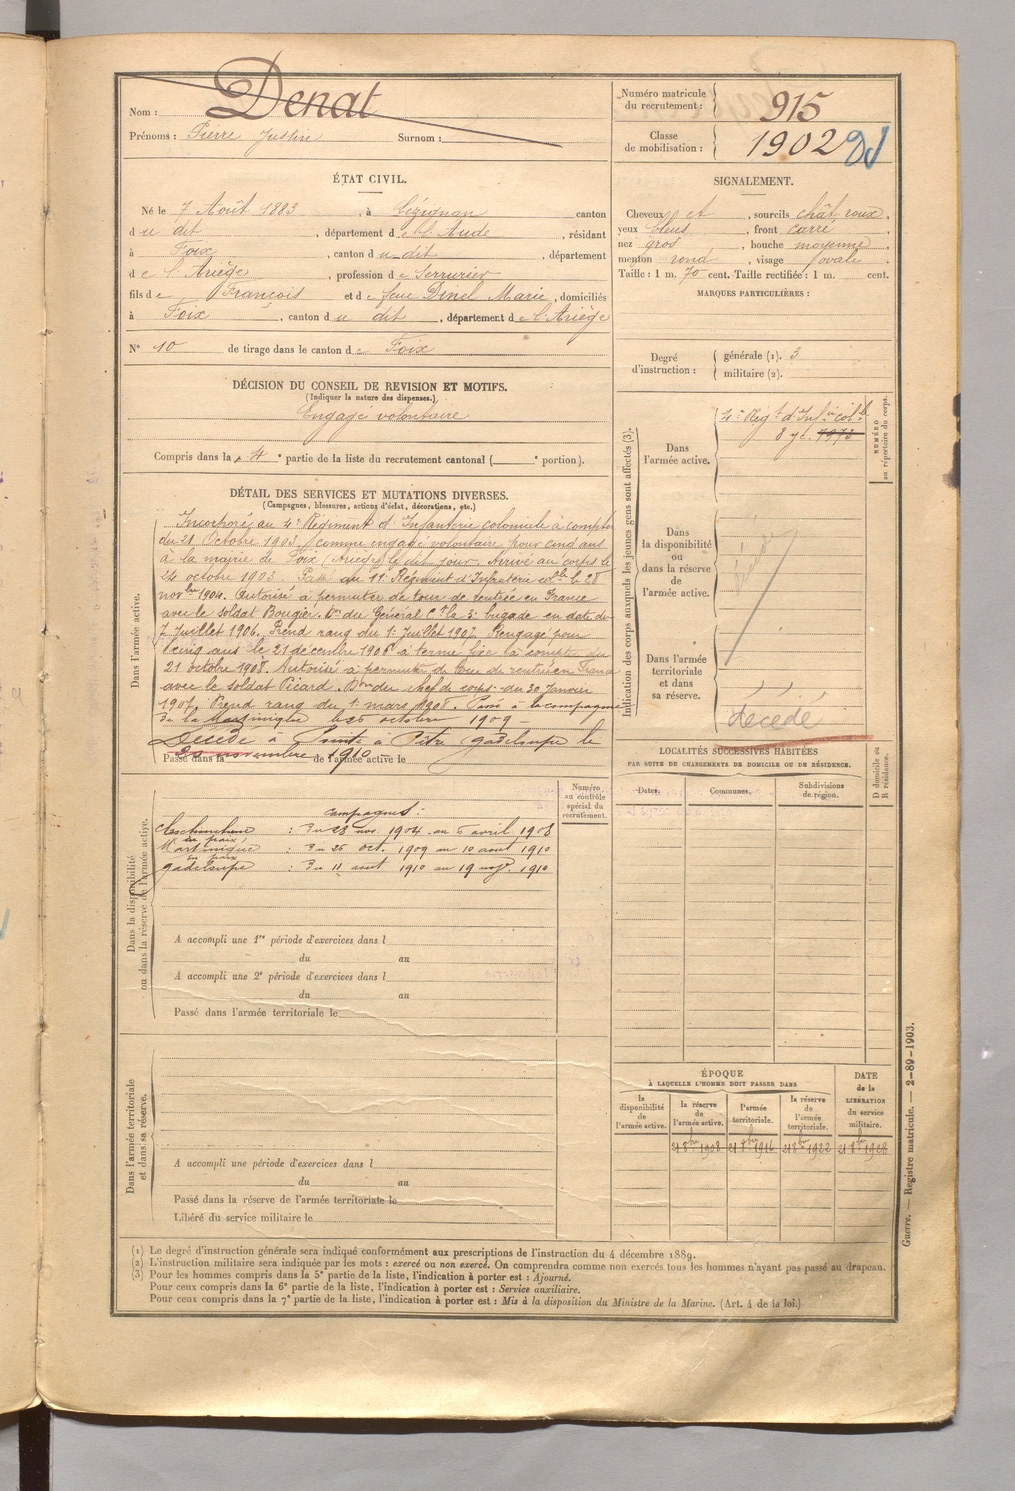 Nom : Denat
Prénoms : Pierre Justin Surnom :
Numéro matricule du recrutement : 915
Classe de mobilisation : 1902
ÉTAT CIVIL.
Né le 7 Août 1883, à Lézignan canton
du dit, département de l'Aude, résidant
à Foix, canton du dit, département
de l'Ariège, profession de Serrurier
fils de François et de feue Dinel Marie, domiciliés
à Foix, canton du dit, département de l'Ariège
N° 10 de tirage dans le canton de Foix
SIGNALEMENT.
Cheveux et, sourcils chât roux,
yeux bleus, front carré
nez gros, bouche moyenne
menton rond, visage ovale.
Taille : 1 m. 70 cent. Taille rectifiée : 1 m. cent.
MARQUES PARTICULIÈRES :
Degré d'instruction : générale (1). 3
militaire (2).
DÉCISION DU CONSEIL DE REVISION ET MOTIFS.
(Indiquer la nature des dispenses.)
Engagé volontaire
Compris dans la 4e partie de la liste du recrutement cantonal ( e portion).
DÉTAIL DES SERVICES ET MUTATIONS DIVERSES.
(Campagnes, blessures, actions d'éclat, décorations, etc.)
Dans l'armée active.
Incorporé au 4e Régiment d'Infanterie coloniale à compter
du 21 Octobre 1903, comme engagé volontaire pour cinq ans
à la mairie de Foix (Ariège) le dit jour. Arrivé au corps le
24 octobre 1903. Passé au 11e Régiment d'Infanterie colle le 28
novbre 1904. Autorisé à permuter de tour de rentrée en France
avec le soldat Bougié. Don du Général Ct la 3e brigade en date du
7 Juillet 1906. Prend rang du 1er Juillet 1907. Rengagé pour
cinq ans le 21 décembre 1906 à terme fixe à compter du
21 octobre 1908. Autorisé à permuter de tour de rentrée en France
avec le soldat Picard. Don du chef de corps du 30 Janvier
1907. Prend rang du 1er mars 1908. Passé à la compagnie
de la Martinique le 25 octobre 1909 -
Décédé à Pointe à Pître Gadeloupe le
novembre 1910
Passé dans la de l'armée active le
Indication des corps auxquels les jeunes gens sont affectés (3).
Dans l'armée active.
4e Régt d'Infie colle
8 yé. 7973
NUMÉRO au répertoire du corps.
Dans la disponibilité ou dans la réserve de l'armée active.
décédé
Dans l'armée territoriale et dans sa réserve.
décédé
LOCALITÉS SUCCESSIVES HABITÉES
PAR SUITE DE CHANGEMENTS DE DOMICILE OU DE RÉSIDENCE.
Dates. Communes. Subdivisions de région. D domicile ou R résidence.
Dans la disponibilité ou dans la réserve de l'armée active.
Numéro au contrôle spécial du recrutement.
Campagnes :
: Du 28 nov. 1904 au 6 avril 1908
en paix
Martinique : Du 25 oct. 1909 au 10 aout 1910
en paix
Gadeloupe : Du 11 aout 1910 au 19 nov. 1910
A accompli une 1re période d'exercices dans l
du au
A accompli une 2e période d'exercices dans l
du au
Passé dans l'armée territoriale le
Dans l'armée territoriale et dans sa réserve.
A accompli une période d'exercices dans l
du au
Passé dans la réserve de l'armée territoriale le
Libéré du service militaire le
ÉPOQUE
À LAQUELLE L'HOMME DOIT PASSER DANS
la disponibilité de l'armée active.
la réserve de l'armée active.
l'armée territoriale.
la réserve de l'armée territoriale.
DATE de la LIBÉRATION du service militaire.
21 8bre 1908 21 8bre 1916 21 8bre 1922 21 8bre 1928
(1) Le degré d'instruction générale sera indiqué conformément aux prescriptions de l'instruction du 4 décembre 1889.
(2) L'instruction militaire sera indiquée par les mots : exercé ou non exercé. On comprendra comme non exercés tous les hommes n'ayant pas passé au drapeau.
(3) Pour les hommes compris dans la 5e partie de la liste, l'indication à porter est : Ajourné.
Pour ceux compris dans la 6e partie de la liste, l'indication à porter est : Service auxiliaire.
Pour ceux compris dans la 7e partie de la liste, l'indication à porter est : Mis à la disposition du Ministre de la Marine. (Art. 4 de la loi.)
Guerre. — Registre matricule. — 2-89-1903.